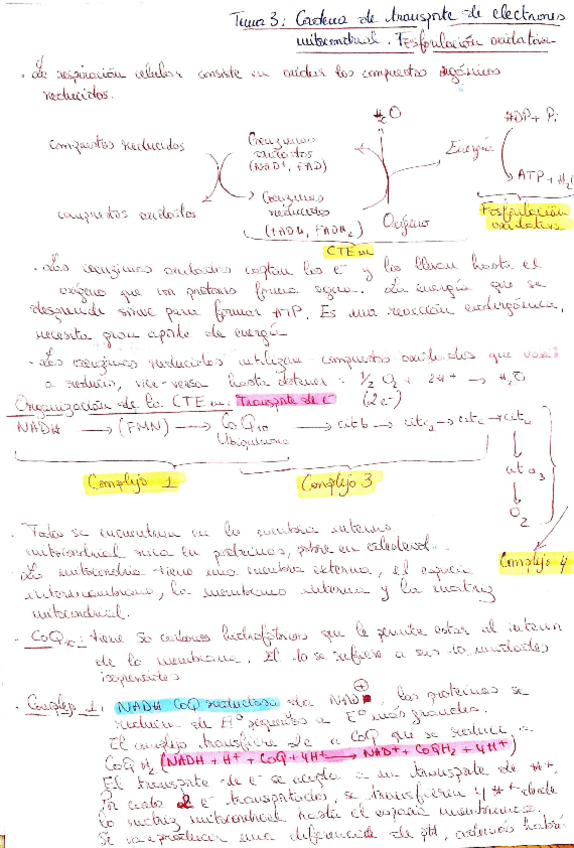 Tema 3: Cadena de transporte de electrones
mitocondrial. Fosforilación oxidativa
· La respiración celular consiste en oxidar los compuestos orgánicos
reducidos.
H2O
ADP + Pi
compuestos reducidos
Coenzimas
oxidados
(NAD+, FAD)
Energía
ATP + H2O
compuestos oxidados
Coenzimas
reducidos
(NADH, FADH2)
Oxígeno
Fosforilación
oxidativa
CTEm
· Las coenzimas oxidadas captan los e- y los llevan hasta el
oxígeno que con protones forma agua. La energía que se
desprende sirve para formar ATP. Es una reacción endergónica,
necesita gran aporte de energía
· Las coenzimas reducidas utilizan compuestos oxidados que
a reducir, vice-versa hasta obtener: 1/2 O2 + 2H+ → H2O
(2e-)
Organización de la CTEm: Transporte de e-
NADH → (FMN) → CoQ10 → cit b → cit c1 → cit c → cit a
Ubiquinona
cit a3
O2
Complejo 1
Complejo 3
Complejo 4
· Todos se encuentran en la membrana interna
mitocondrial rica en proteínas, pobre en colesterol.
· La mitocondria tiene una membrana externa, el espacio
intermembrana, la membrana interna y la matriz
mitocondrial.
· CoQ10: tiene 50 carbonos hidrofóbicos que le permite estar al interior
de la membrana. El 10 se refiere a sus 10 unidades
isoprenoides
· Complejo 1: NADH CoQ reductasa las proteínas se
reducen de Eº pequeños a Eº más grandes.
El complejo transfiere 2e- a CoQ que se reduce a
CoQH2 (NADH + H+ + CoQ + 4H+ → NAD+ + CoQH2 + 4H+)
El transporte de e- se acopla a un transporte de H+.
Por cada 2 e- transportados, se transfieren 4 H+ desde
la matriz mitocondrial hasta el espacio membranoso.
Se va a producir una diferencia de pH, además habrá